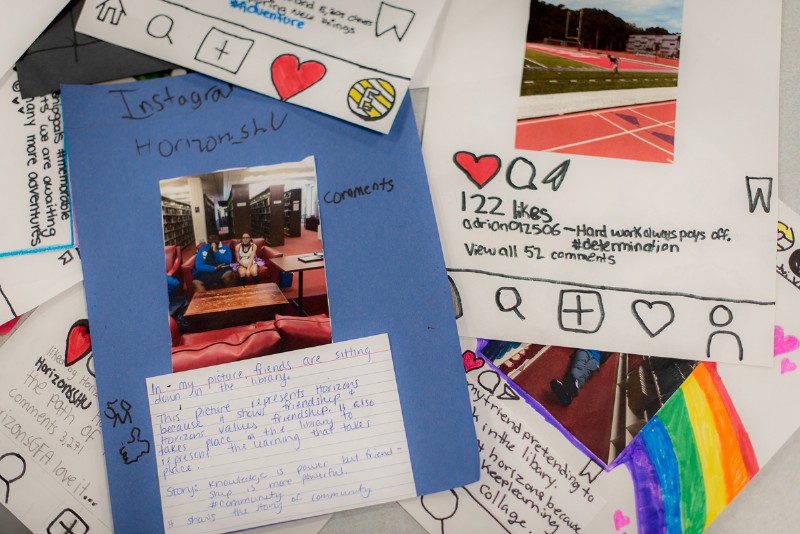 #Adventure
Instagra
Horizon_sHU
comments
In my picture friends are sitting
down in the library.
This picture represents Horizons
because it shows friendship &
Horizons values friendship. It also
takes place in the library to
represent the learning that takes
place.
Story: Knowledge is power but friend-
ship is more powerful.
#Community
It shows the story of community
122 likes
adrian012506 - Hard work always pays off.
#determination
View all 52 comments
we are awaiting
many more adventures
HorizonsSHU
the path of
comments 3,271
love it...
my friend pretending to
in the library.
horizons because
Keeplearning
collage.